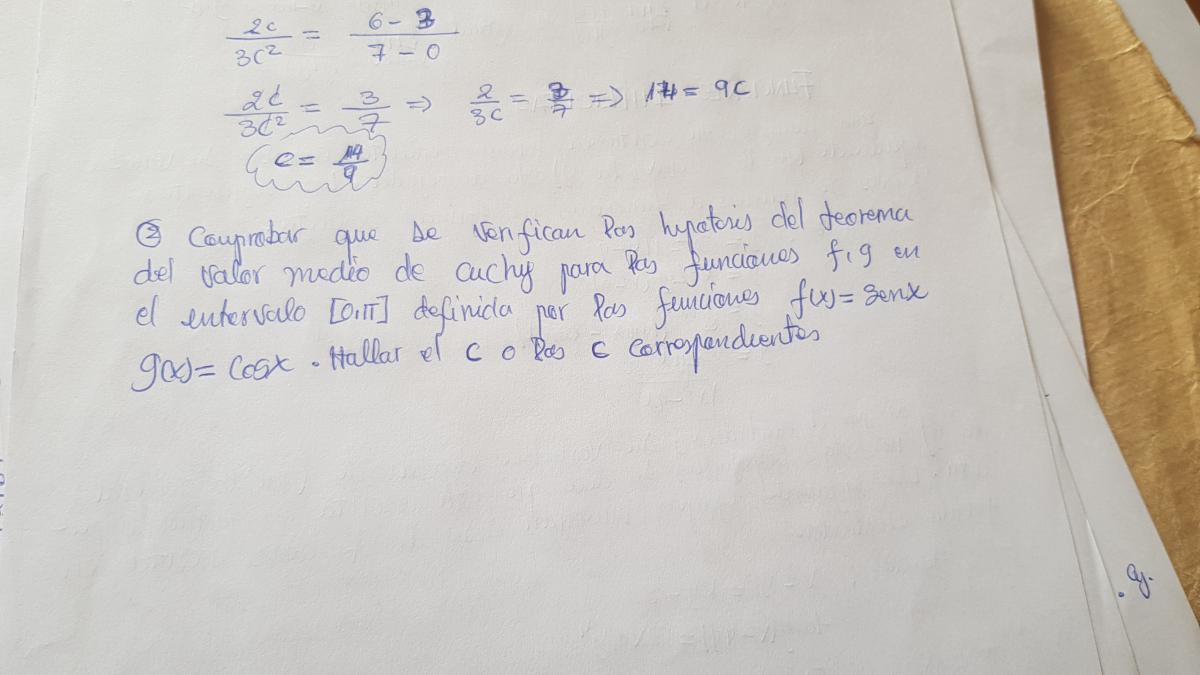 2c/3c² = 6-3/7-0
2c/3c² = 3/7 => 2/3c = 3/7 => 14 = 9c
c = 14/9
② Comprobar que se verifican las hipotesis del teorema
del valor medio de cuchy para las funciones f, g en
el entervalo [0,π] definida por las funciones f(x) = senx
g(x) = cosx . Hallar el c o las c correspondientes